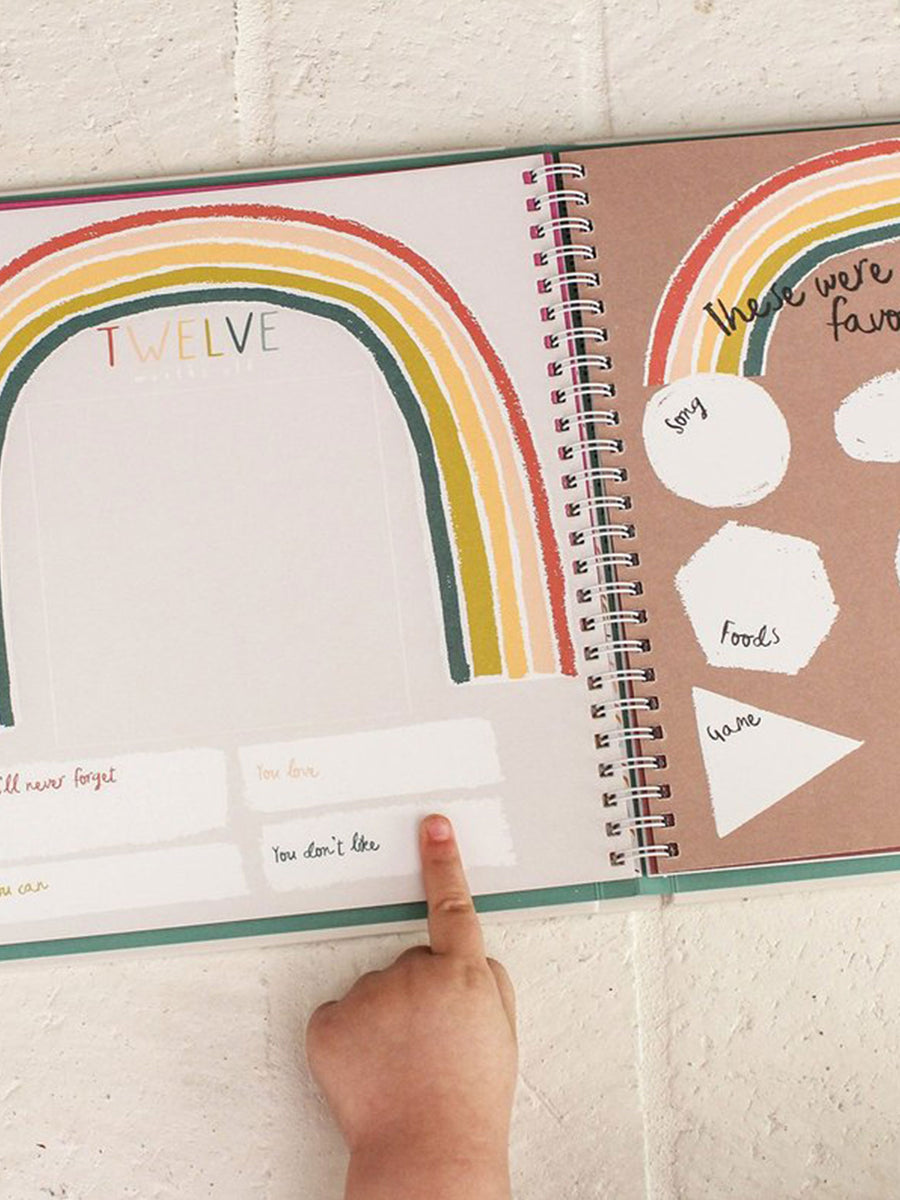 TWELVE
months old
'll never forget
You love
You don't like
ou can
These were
favo
Song
Foods
Game